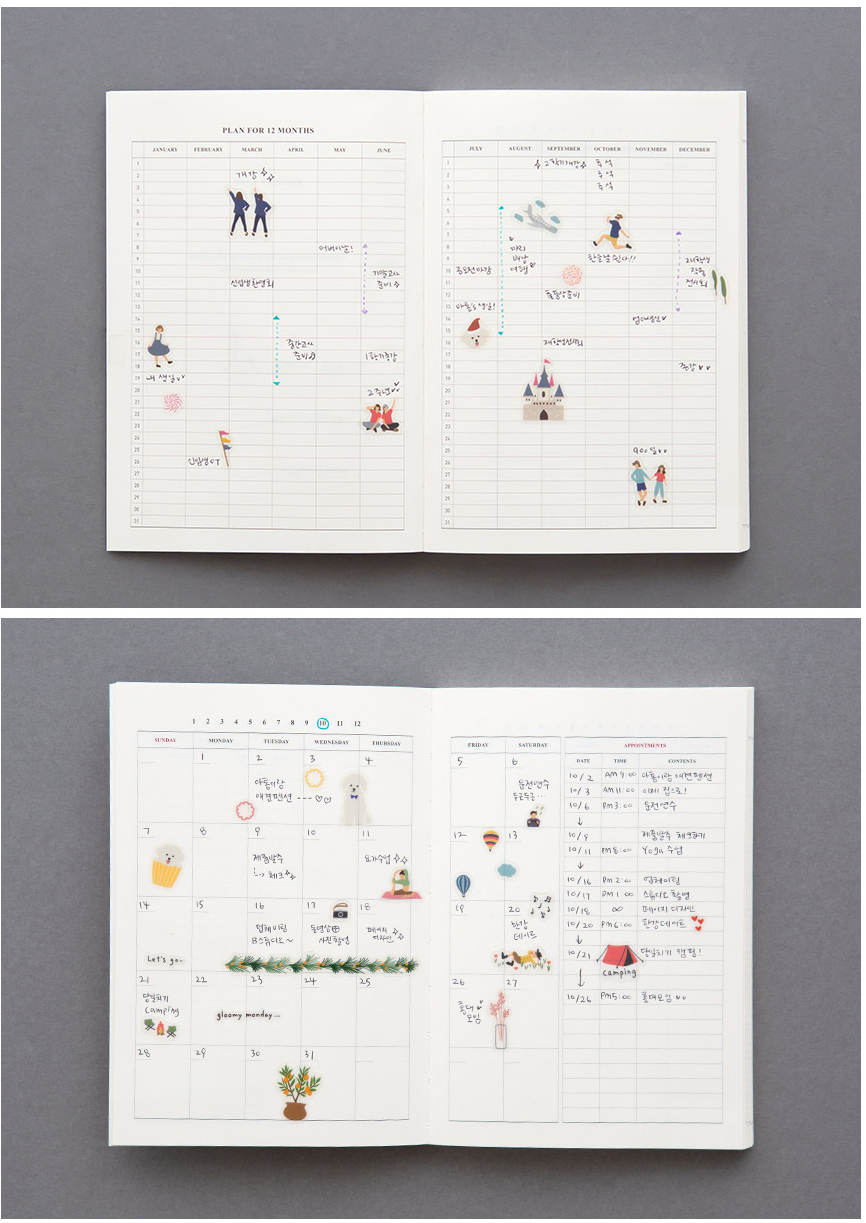 PLAN FOR 12 MONTHS
JANUARY FEBRUARY MARCH APRIL MAY JUNE
1
2 개강
3
4
5
6
7
8 어버이날!
9
10 기말고사
11 신입생환영회 준비
12
13
14
15
16 중간고사
17 준비 1학기종강
18
19 내 생일
20 2주년
21
22
23
24
25
26 신입생OT
27
28
29
30
31
JULY AUGUST SEPTEMBER OCTOBER NOVEMBER DECEMBER
1 2학기개강 추석
2 추석
3 추석
4
5
6
7
8 파리
9 배낭 한글날 쉰다!! 2대학생
10 공모전마감 여행 작품
11 전시회
12 졸품상준비
13 아롱's 생일!
14 엄마생신
15
16
17
18 종강
19
20
21
22
23
24
25 900일
26
27
28
29
30
31
1 2 3 4 5 6 7 8 9 10 11 12
SUNDAY MONDAY TUESDAY WEDNESDAY THURSDAY
1 2 3 4
아롱이랑
애견펜션
7 8 9 10 11
제품발주 요가수업
체크
14 15 16 17 18
업체미팅 동영상 페이지
B스튜디오~ 사진촬영 디자인
Let's go-
21 22 23 24 25
당일치기
camping
gloomy monday...
28 29 30 31
FRIDAY SATURDAY
5 6
운전연수
두근두근...
12 13
19 20
한강
데이트
26 27
홍대
모임
APPOINTMENTS
DATE TIME CONTENTS
10/2 AM 9:00 아롱이랑 애견펜션
10/3 AM 11:00 이제 집으로!
10/6 PM 3:00 운전연수
10/9 제품발주 체크하기
10/11 PM 8:00 Yoga 수업
10/16 PM 2:00 업체미팅
10/17 PM 1:00 스튜디오 촬영
10/18 ∞ 페이지 디자인
10/20 PM 6:00 한강데이트
10/21 당일치기 캠핑!
camping
10/26 PM 5:00 홍대모임